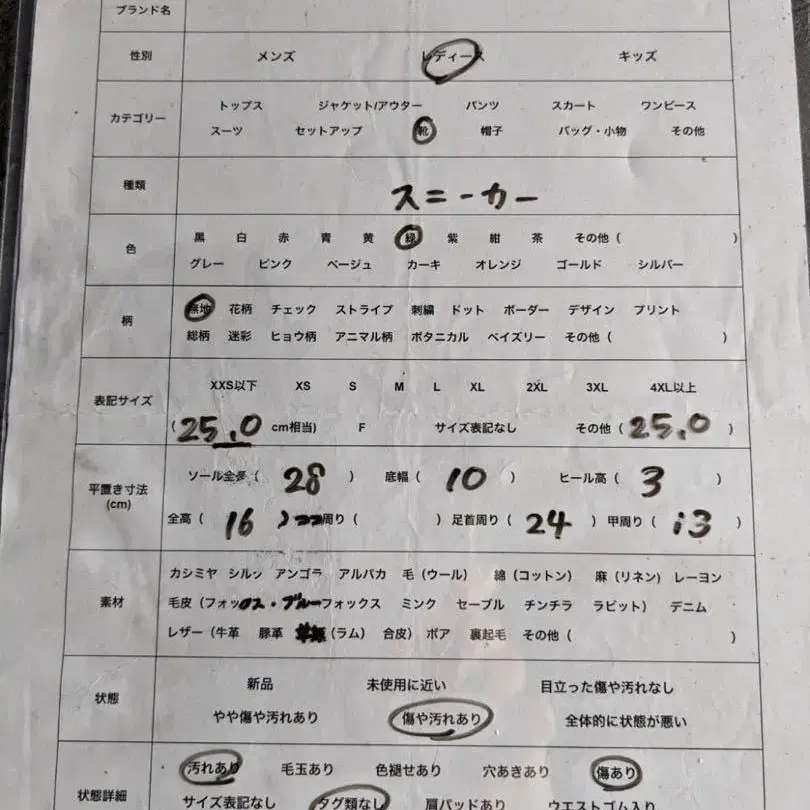 ブランド名
性別 メンズ レディース キッズ
トップス ジャケット/アウター パンツ スカート ワンピース
カテゴリー
スーツ セットアップ 靴 帽子 バッグ・小物 その他
種類 スニーカー
黒 白 赤 青 黄 緑 紫 紺 茶 その他 ( )
色
グレー ピンク ベージュ カーキ オレンジ ゴールド シルバー
無地 花柄 チェック ストライプ 刺繍 ドット ボーダー デザイン プリント
柄
総柄 迷彩 ヒョウ柄 アニマル柄 ボタニカル ペイズリー その他 ( )
XXS以下 XS S M L XL 2XL 3XL 4XL以上
表記サイズ
( 25.0 cm相当) F サイズ表記なし その他 ( 25.0 )
ソール全 ( 28 ) 底幅 ( 10 ) ヒール高 ( 3 )
平置き寸法
(cm)
全高 ( 16 ) 周り ( ) 足首周り ( 24 ) 甲周り ( 13 )
カシミヤ シルク アンゴラ アルパカ 毛 (ウール) 綿 (コットン) 麻 (リネン) レーヨン
素材
毛皮 (フォックス・ブルーフォックス ミンク セーブル チンチラ ラビット) デニム
レザー (牛革 豚革 (ラム) 合皮) ボア 裏起毛 その他 ( )
新品 未使用に近い 目立った傷や汚れなし
状態
やや傷や汚れあり 傷や汚れあり 全体的に状態が悪い
汚れあり 毛玉あり 色褪せあり 穴あきあり 傷あり
状態詳細
サイズ表記なし タグ類なし 肩パッドあり ウエストゴム入り